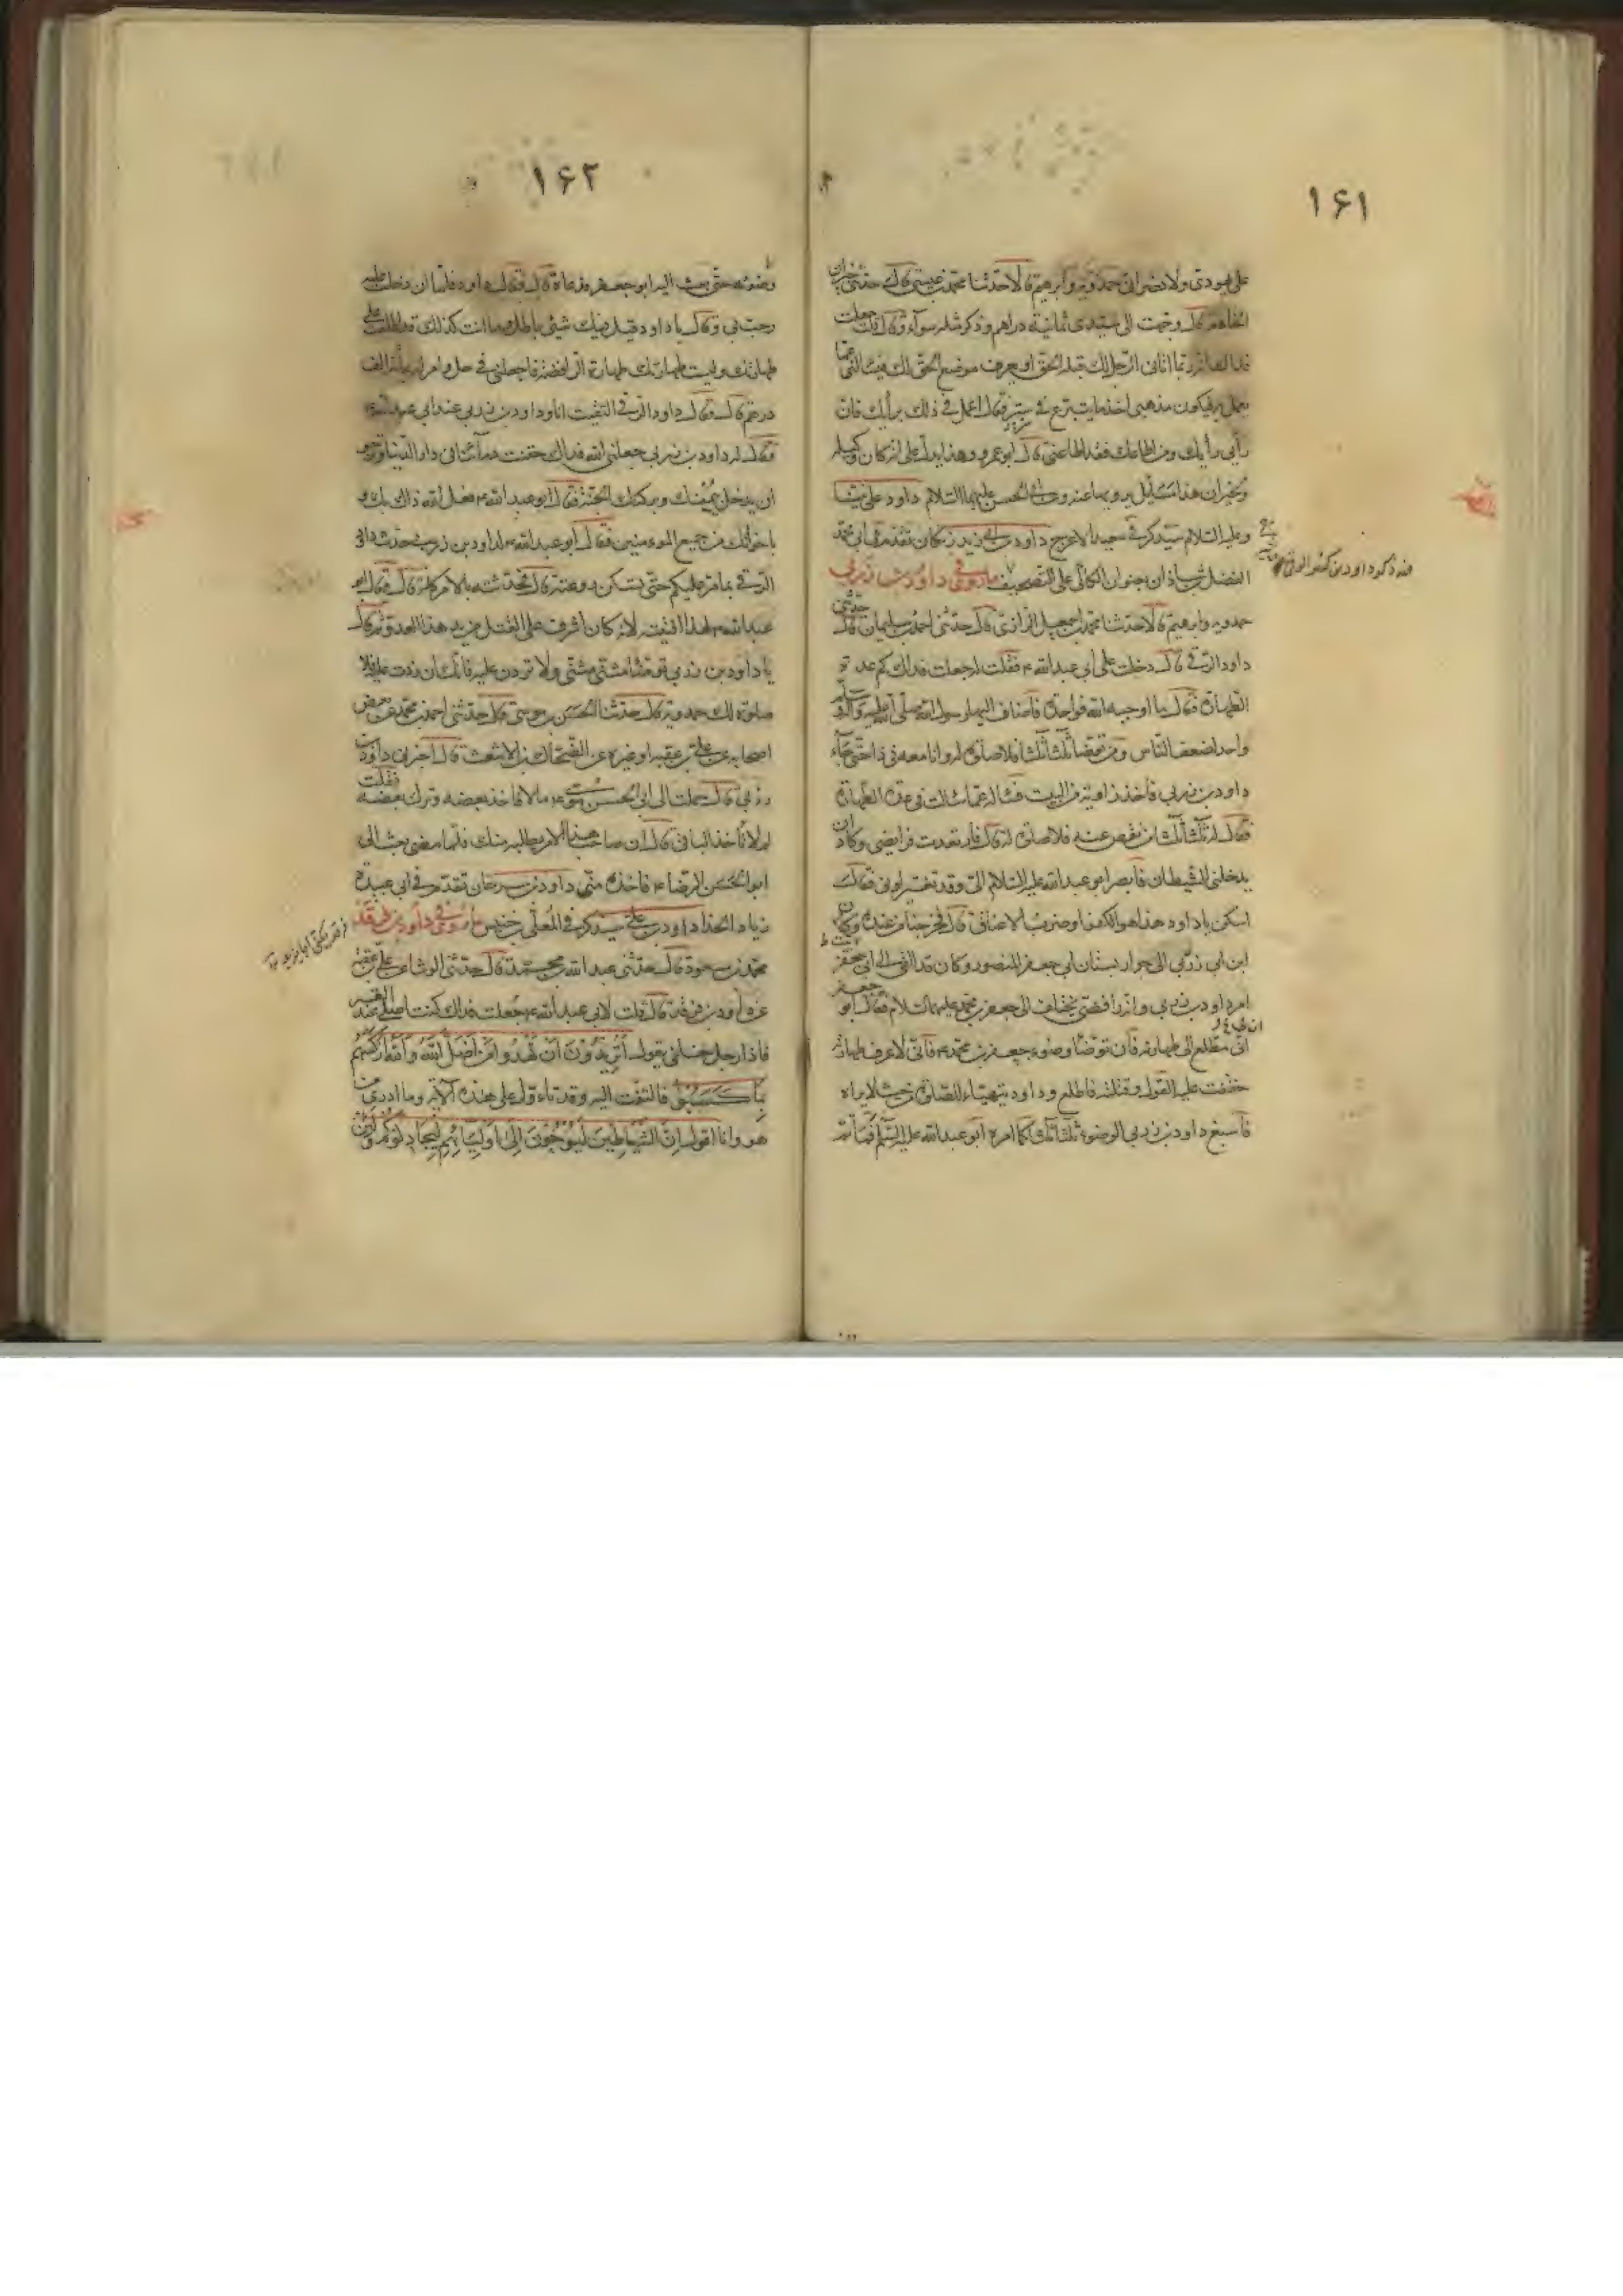 ١۶١
على يهودى ولا نصرانى حمدويه وابرهيم قالا حدثنا محمد بن عيسى قال حدثنى خيران
الخادم قال وجهت الى سيدى ثمانية دراهم وذكر مثله سوآء وقال قلت جعلت
فداك انه ربما اتانى الرجل لك قبله الحق او يعرف موضع الحق لك فيسألنى عما
يعمل به فيكون مذهبى اخذ ما يتبرع فى سر قال اعمل فى ذلك برأيك فان
رأيى رأيك ومن اطاعك فقد اطاعنى قال ابو عمرو وهذا يدل على انه كان وكيله
ولخيران هذا مسائل يرويها عنه وعن ابى الحسن عليهما السلام داود على نبينا
وعليه السلام سيذكر فى سعيد الاعرج داود بن ابى زيد زنكان تقدم فى ابى محمد
الفضل بن شاذان بعنوان الكافى على التصحيف ما روى فى داود بن زربى
حمدويه وابرهيم قالا حدثنا محمد بن اسمعيل الرازى قال حدثنى احمد بن سليمان قال حدثنى
داود الرقى قال دخلت على ابى عبد الله ع فقلت له جعلت فداك كم عدة
الطهارة فقال ما اوجبه الله فواحدة فاضاف اليها رسول الله صلى الله عليه وآله
واحدة لضعف الناس ومن توضأ ثلثا ثلثا فلا صلوة له وانا معه فى ذا حتى جآء
داود بن زربى فاخذ زاوية من البيت فسأله عما سألت فى عدة الطهارة
فقال له ثلثا ثلثا من نقص عنه فلا صلوة له قال فارتعدت فرايصى وكاد ان
يدخلنى الشيطان فابصر ابو عبد الله عليه السلام الى وقد تغير لونى فقال
اسكن يا داود هذا هو الكفر او ضرب الاعناق قال فخرجنا من عنده وكان
ابن ابى زربى الى جوار بستان ابى جعفر المنصور وكان قد القى الى ابى جعفر
امر داود بن زربى وانه رافضى يختلف الى جعفر بن محمد عليهما السلام فقال ابو جعفر
انى مطلع الى طهارته فان توضأ وضوء جعفر بن محمد ع فانى لاعرف طهارته
حققت عليه القول وقتلته فاطلع وداود يتهيأ للصلوة من حيث لا يراه
فاسبغ داود بن زربى الوضوء ثلثا ثلثا كما امره ابو عبد الله عليه السلام فما تم
١۶٢
وضوئه حتى بعث اليه ابو جعفر فدعاه قال فقال داود فلما ان دخلت عليه
رحب بى وقال يا داود قيل فيك شئ باطل وما انت كذلك قد اطلعت على
طهارتك وليست طهارتك طهارة الرافضة فاجعلنى فى حل وامر له بمائة الف
درهم قال وقال داود الرقى التقيت انا وداود بن زربى عند ابى عبد الله ع
فقال له داود بن زربى جعلنى الله فداك حقنت دمآئنا فى دار الدنيا ونرجو
ان يدخل بيمنك وبركتك الجنة فقال ابو عبد الله ع فعل الله ذلك بك و
باخوانك من جميع المومنين فقال ابو عبد الله ع لداود بن زربى حدث داود
الرقى بما مر عليكم حتى تسكن روعته قال فحدثته بالامر كله قال فقال ابو
عبد الله ع لهذا افتيته لانه كان اشرف على القتل من يد هذا العدو ثم قال
يا داود بن زربى توضأ مثنى مثنى ولا تزدن عليه فانك ان زدت عليه فلا
صلوة لك حمدويه قال حدثنا الحسن بن موسى قال حدثنى احمد بن محمد عن بعض
اصحابه عن على بن عقبه او غيره عن الضحاك بن الاشعث قال اخبرنى داود بن
زربى قال حملت الى ابى الحسن موسى ع مالا فاخذ بعضه وترك بعضه فقلت
له لا تأخذ الباقى قال ان صاحب هذا الامر يطلبه منك فلما مضى بعث الى
ابو الحسن الرضا ع فاخذه منى داود بن سرحان تقدم فى ابى عبيدة
زياد الحذا داود بن على سيذكر فى المعلى بن خنيس ما روى فى داود بن فرقد
محمد بن مسعود قال حدثنى عبد الله بن محمد قال حدثنى الوشا عن على بن عقبه
عن داود بن فرقد قال قلت لابى عبد الله ع جعلت فداك كنت اصلى عند القبر
فاذا رجل خلفى يقول أَتُرِيدُونَ أَنْ تَهْدُوا مَنْ أَضَلَّ اللَّهُ وَاللَّهُ أَرْكَسَهُمْ
بِمَا كَسَبُوا فالتفت اليه وقد تاول على هذه الآية وما ادرى من
هو وانا اقول إِنَّ الشَّيَاطِينَ لَيُوحُونَ إِلَى أَوْلِيَائِهِمْ لِيُجَادِلُوكُمْ وَإِنْ